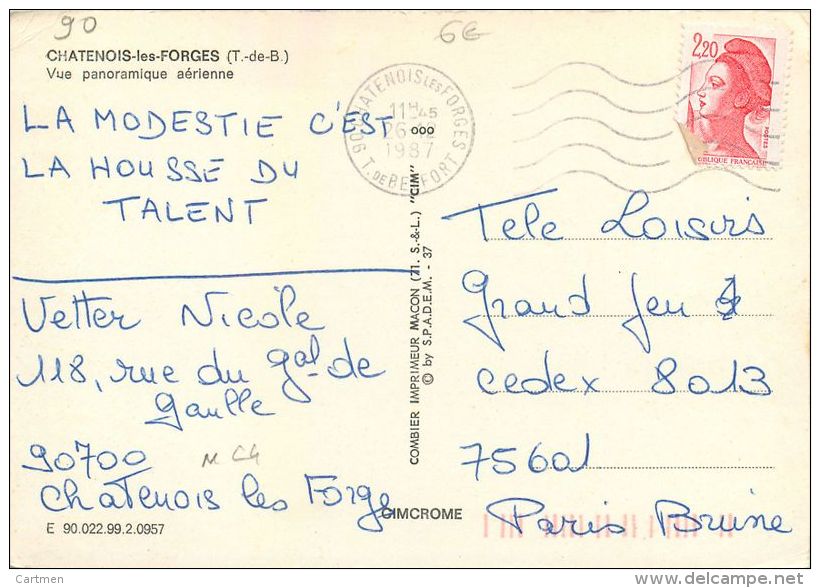 90
6€
CHATENOIS-les-FORGES (T.-de-B.)
Vue panoramique aérienne
LA MODESTIE C'EST
LA HOUSSE DU
TALENT
Vetter Nicole
118, rue du gal de
gaulle
90700
chatenois les Forge
E 90.022.99.2.0957
90 CHATENOIS LES FORGES
11H45
26-12
1987
T. DE BELFORT
COMBIER IMPRIMEUR MACON (71. S.-&-L.) "CIM"
© by S.P.A.D.E.M. - 37
CIMCROME
2,20
POSTES
REPUBLIQUE FRANÇAISE
Tele Loisirs
Grand Jeu
cedex 8013
75601
Paris Brune
Cartmen
www.delcampe.net